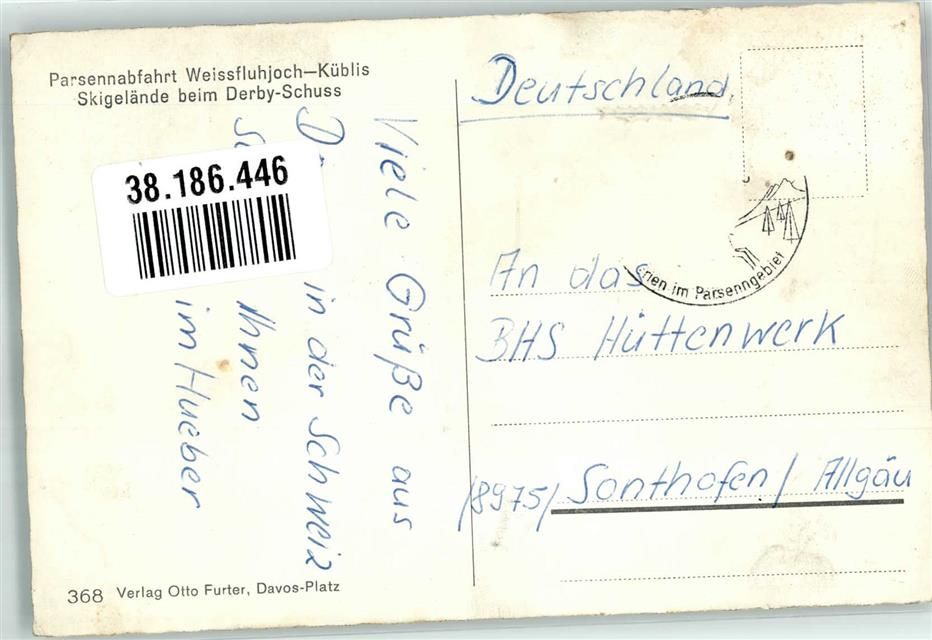 Parsennabfahrt Weissfluhjoch—Küblis
Skigelände beim Derby-Schuss
38.186.446
Viele Grüße aus
in der Schweiz
Ihnen
im Hueber
368 Verlag Otto Furter, Davos-Platz
Deutschland.
rien im Parsenngebiet
An das
BHS Hüttenwerk
/8975/ Sonthofen / Allgäu